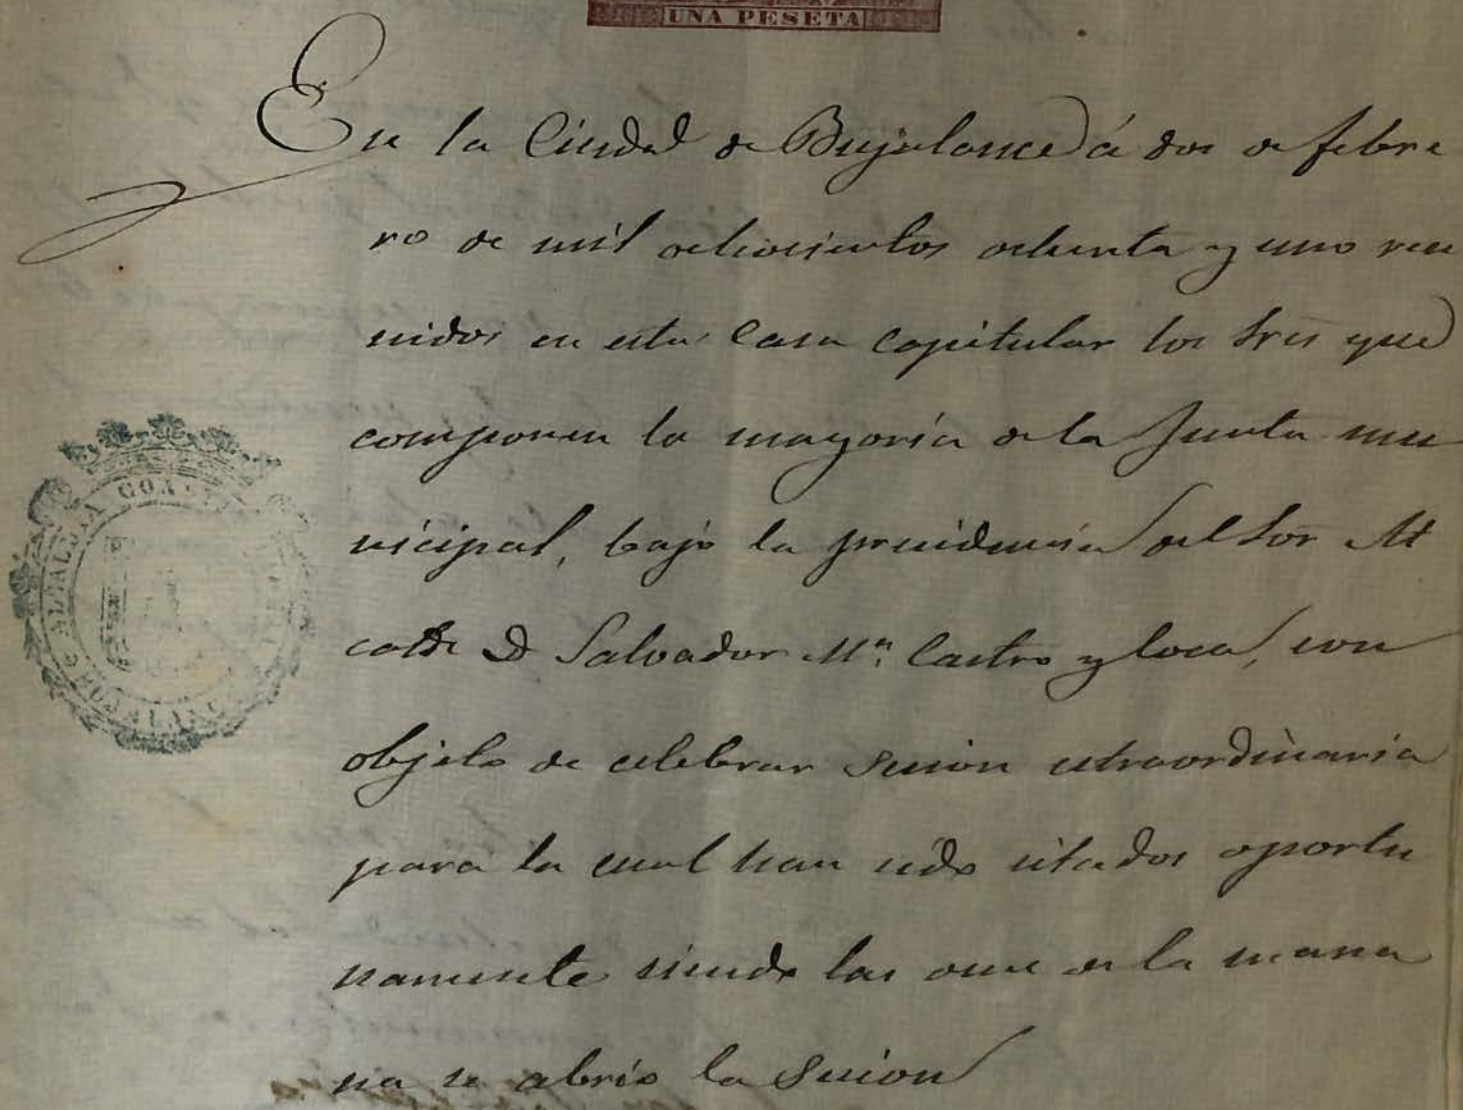 UNA PESETA
En la Ciudad de Bujalance á dos de febre
ro de mil ochocientos ochenta y uno reu
nidos en esta Casa Capitular los Sres que
componen la mayoría de la Junta mu
nicipal, bajo la presidencia del Sor Al
calde D Salvador Mª. Castro y Coca, con
objeto de celebrar sesion estraordinaria
para la cual han sido citados oportu
namente siendo las once de la maña
na se abrió la Sesion
ALCALDIA CONST
BUJALANCE